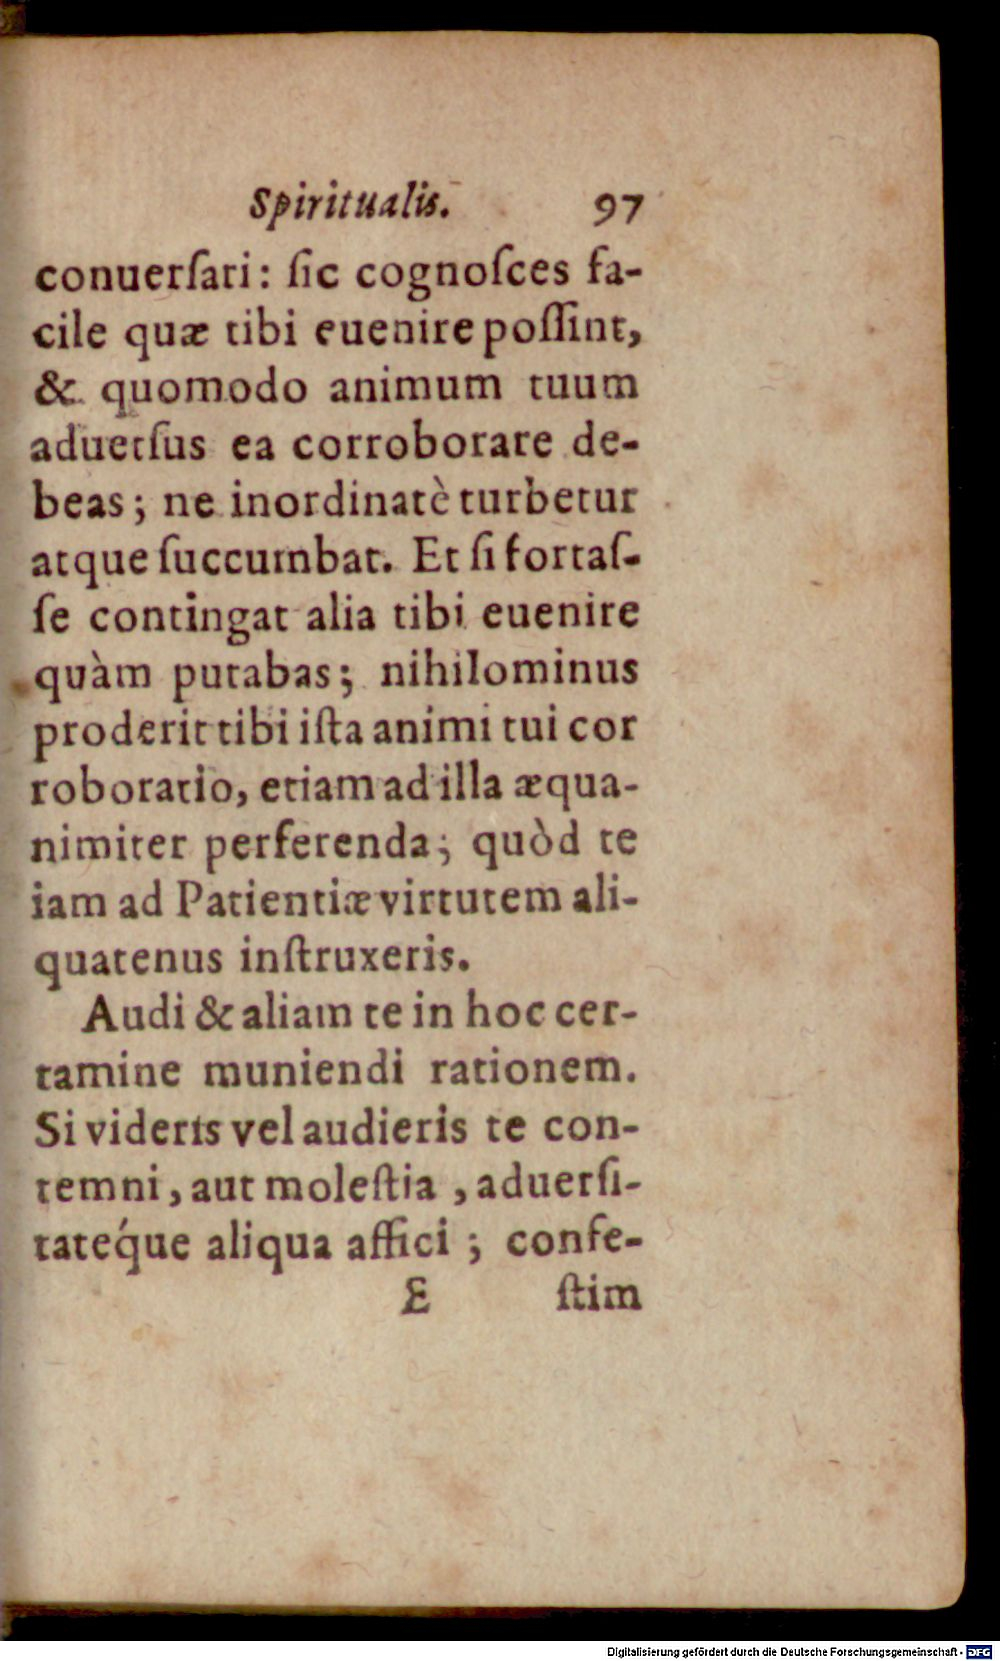 Spiritualis. 97
conuerſari: ſic cognoſces fa-
cile quæ tibi euenire poſſint,
& quomodo animum tuum
aduerſus ea corroborare de-
beas; ne inordinatè turbetur
atque ſuccumbat. Et ſi fortaſ-
ſe contingat alia tibi euenire
quàm putabas; nihilominus
proderit tibi iſta animi tui cor
roboratio, etiam ad illa æqua-
nimiter perferenda; quòd te
iam ad Patientiæ virtutem ali-
quatenus inſtruxeris.
Audi & aliam te in hoc cer-
tamine muniendi rationem.
Si videris vel audieris te con-
temni, aut moleſtia, aduerſi-
tateq́ue aliqua affici; confe-
E ſtim
Digitalisierung gefördert durch die Deutsche Forschungsgemeinschaft - DFG